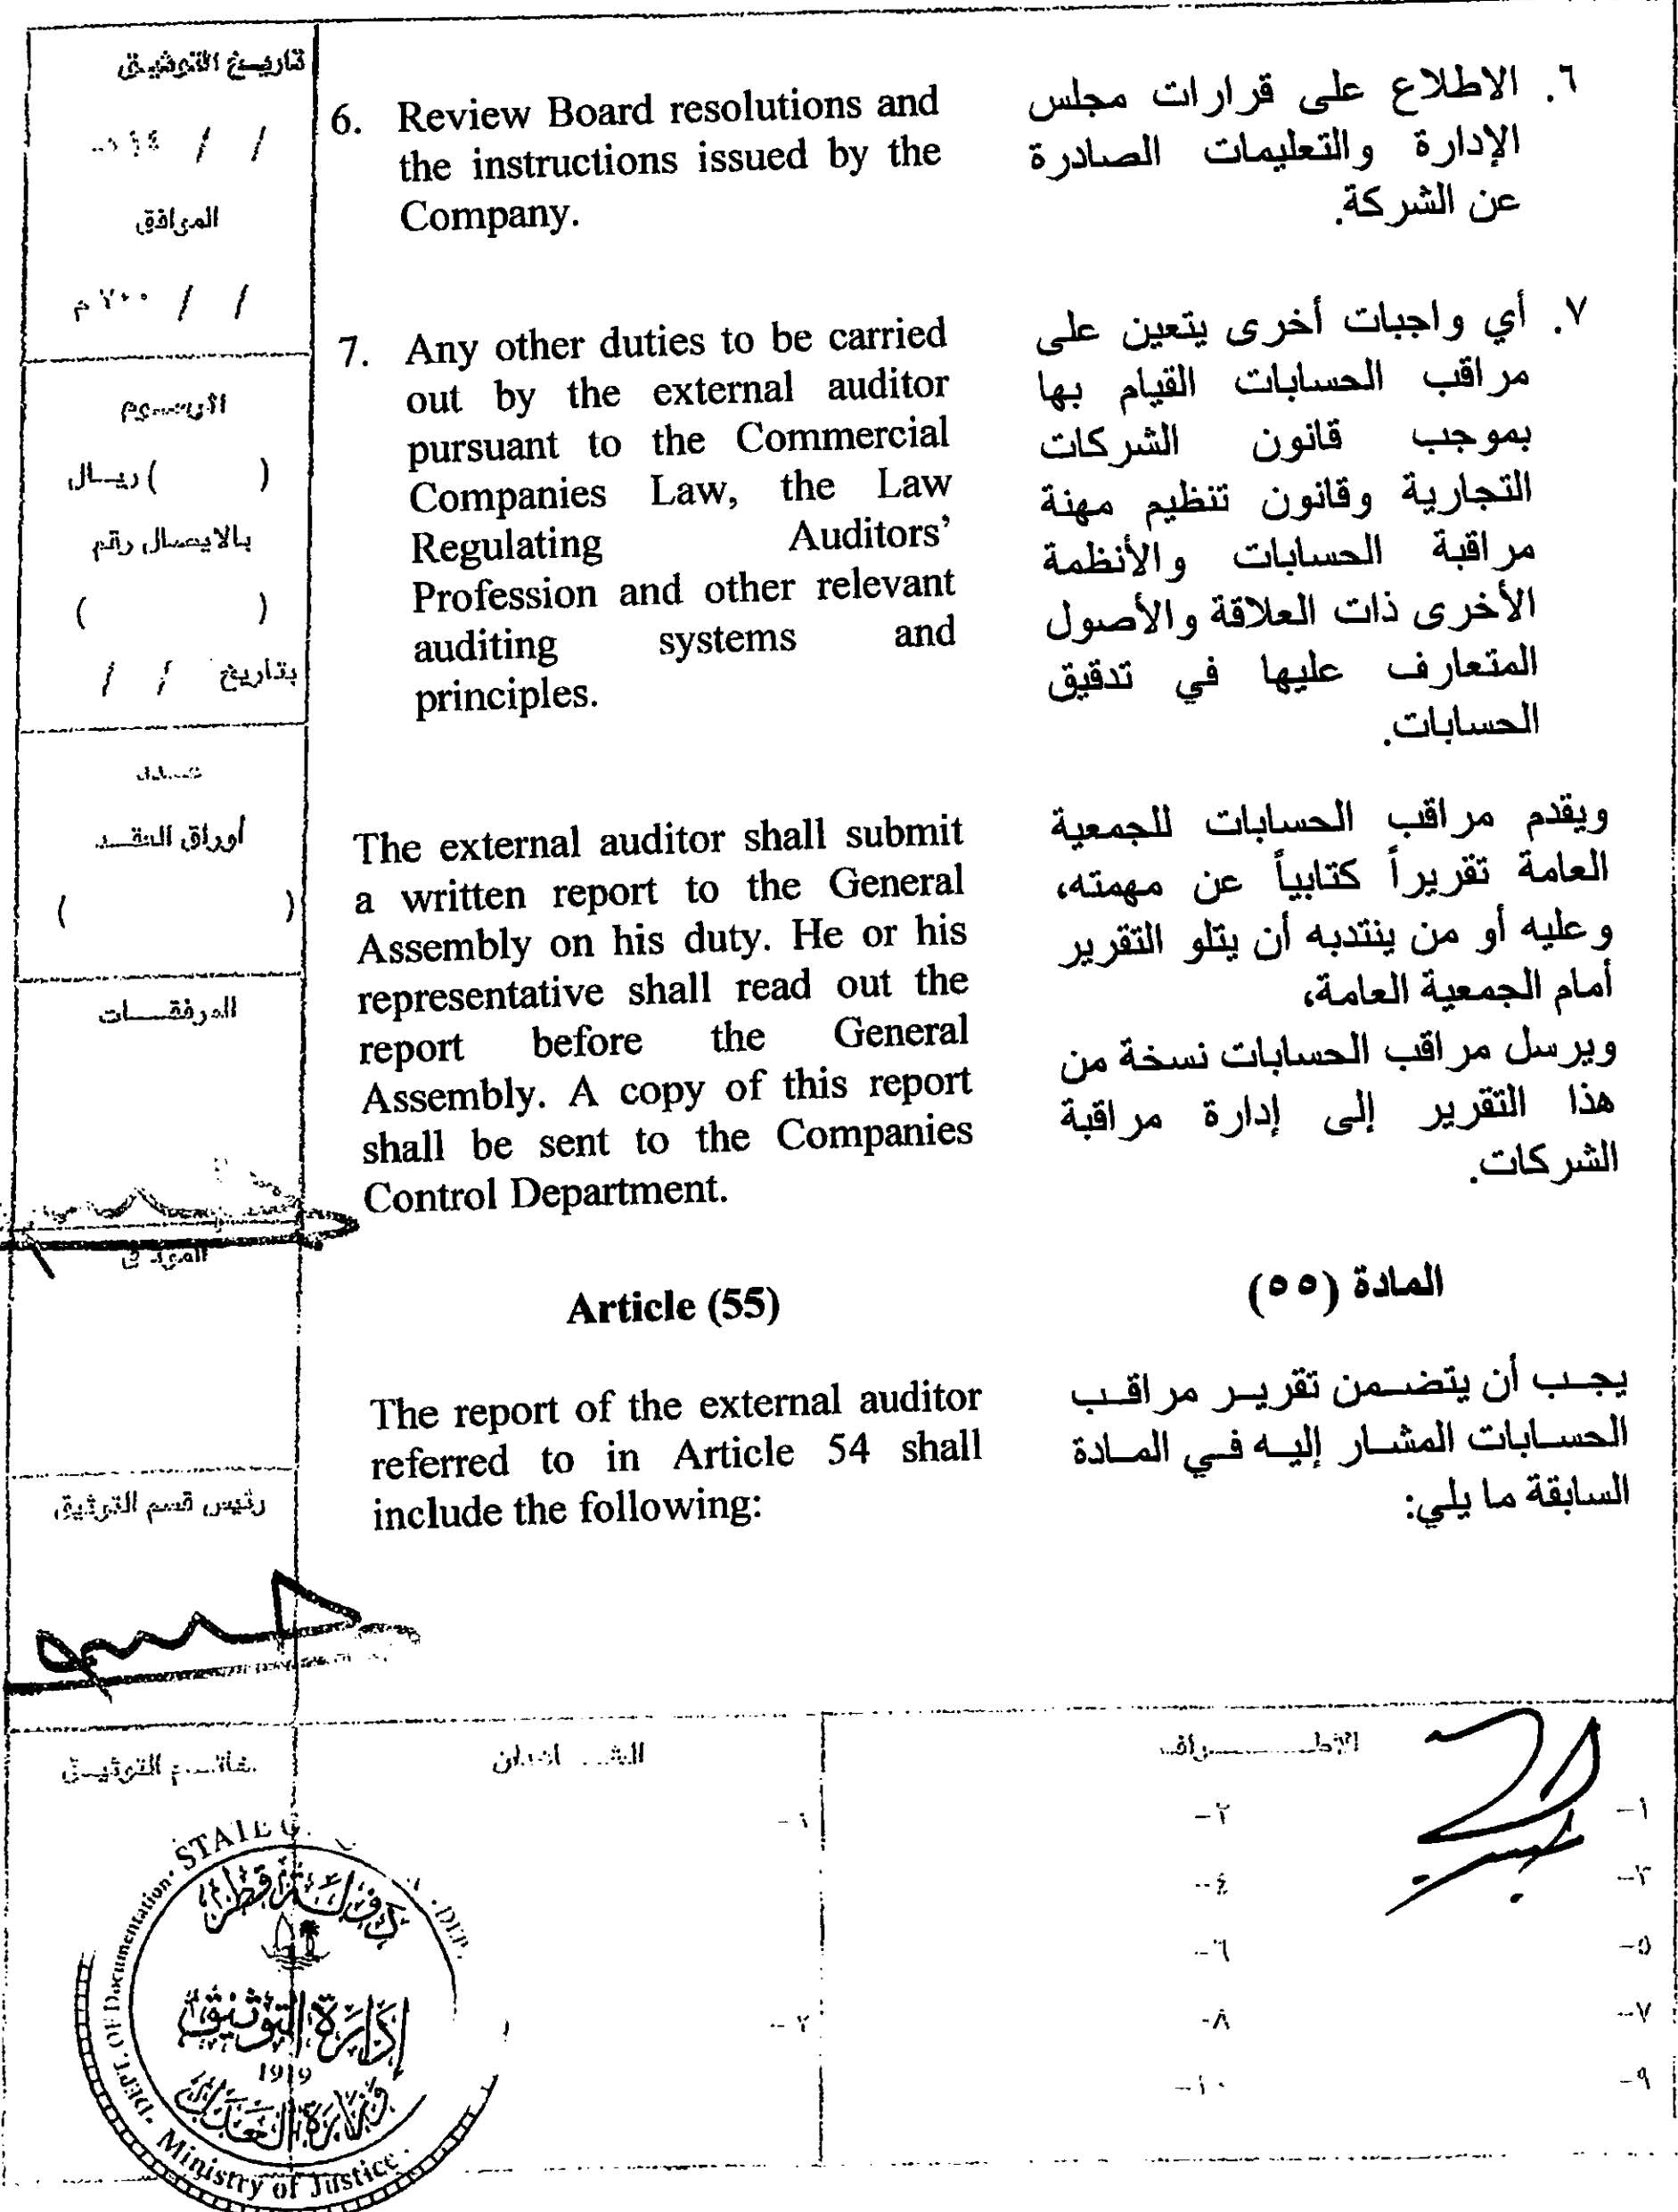 تاريخ التوثيق
/ / ١٤هـ
الموافق
/ / ٢٠٠م
الرسوم
( ) ريال
بالايصال رقم
( )
بتاريخ / /
عدد
أوراق العقد
( )
المرفقات
الموثق
رئيس قسم التوثيق
6. Review Board resolutions and
the instructions issued by the
Company.
7. Any other duties to be carried
out by the external auditor
pursuant to the Commercial
Companies Law, the Law
Regulating Auditors’
Profession and other relevant
auditing systems and
principles.
The external auditor shall submit
a written report to the General
Assembly on his duty. He or his
representative shall read out the
report before the General
Assembly. A copy of this report
shall be sent to the Companies
Control Department.
Article (55)
The report of the external auditor
referred to in Article 54 shall
include the following:
٦. الاطلاع على قرارات مجلس
الإدارة والتعليمات الصادرة
عن الشركة.
٧. أي واجبات أخرى يتعين على
مراقب الحسابات القيام بها
بموجب قانون الشركات
التجارية وقانون تنظيم مهنة
مراقبة الحسابات والأنظمة
الأخرى ذات العلاقة والأصول
المتعارف عليها في تدقيق
الحسابات.
ويقدم مراقب الحسابات للجمعية
العامة تقريراً كتابياً عن مهمته،
وعليه أو من ينتدبه أن يتلو التقرير
أمام الجمعية العامة،
ويرسل مراقب الحسابات نسخة من
هذا التقرير إلى إدارة مراقبة
الشركات.
المادة (٥٥)
يجب أن يتضمن تقرير مراقب
الحسابات المشار إليه في المادة
السابقة ما يلي:
الأطراف
١-
٢-
٣-
٤-
٥-
٦-
٧-
٨-
٩-
١٠-
الشاهدان
١-
٢-
خاتم التوثيق
STATE
دولة قطر
إدارة التوثيق
1919
وزارة العدل
DEPT. OF Documentation
Ministry of Justice